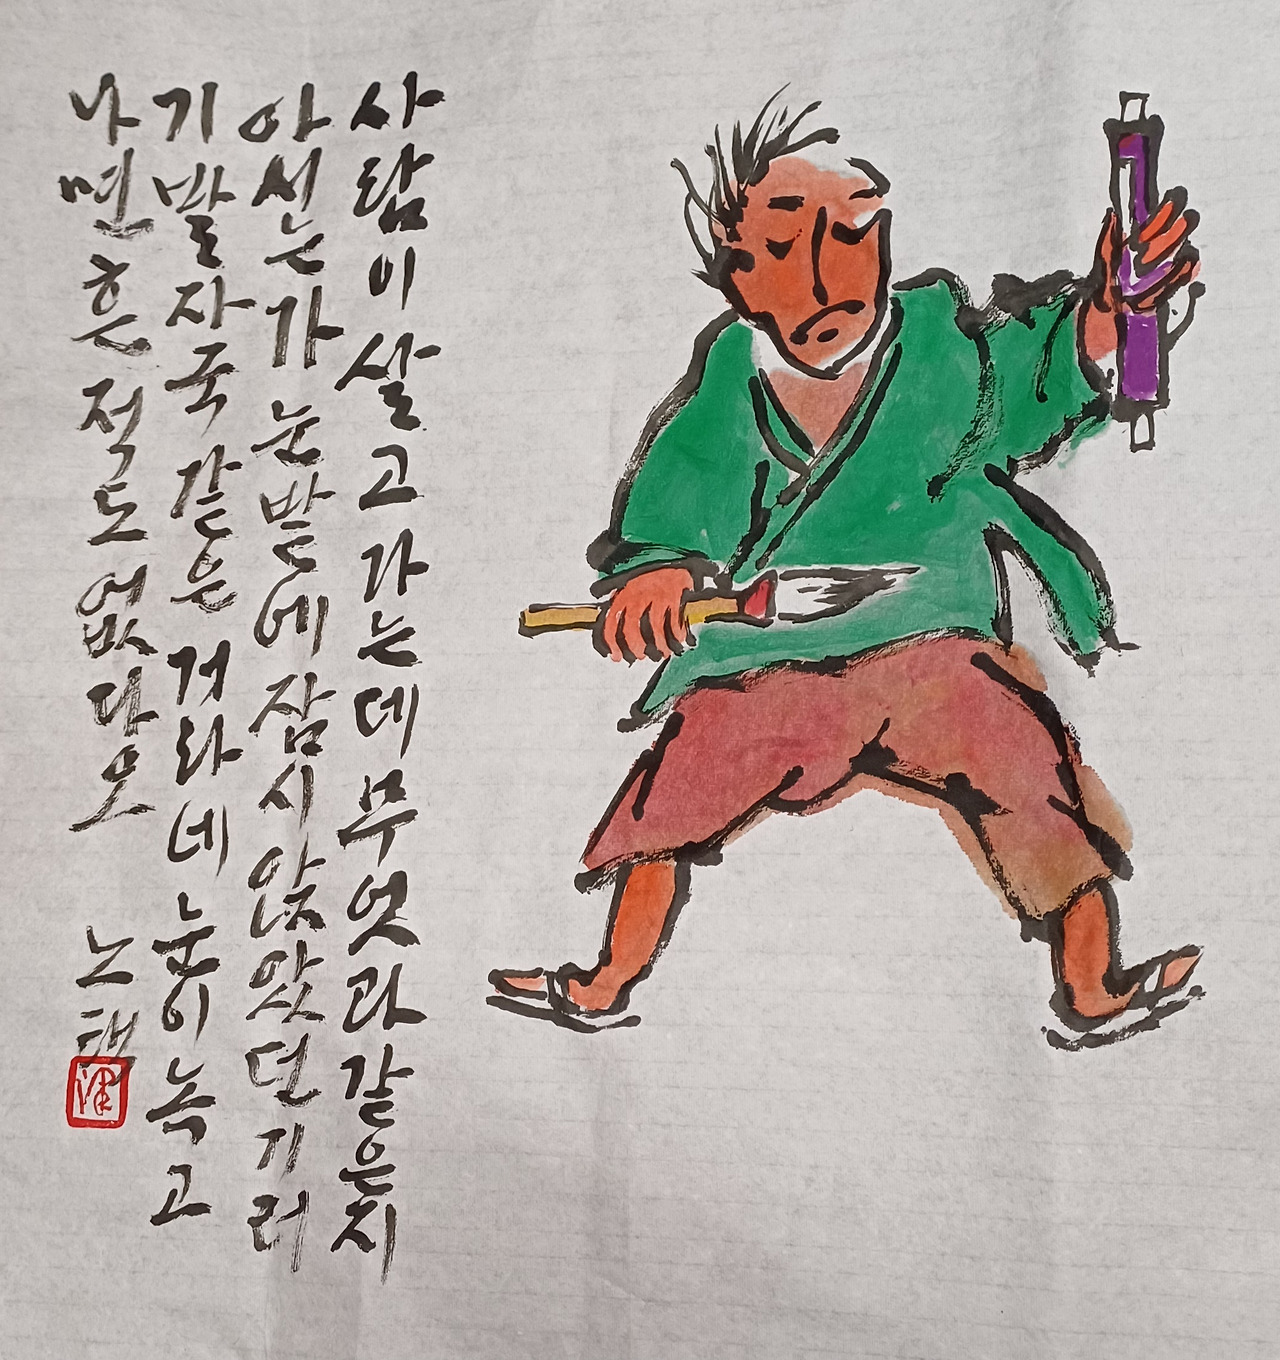 사람이 살고 가는데 무엇과 같은지
아선는가 눈밭에 잠시 앉았던 기러
기 발자국 같은 거라네 눈이 녹고
나면 흔적도 없다오
노쟁